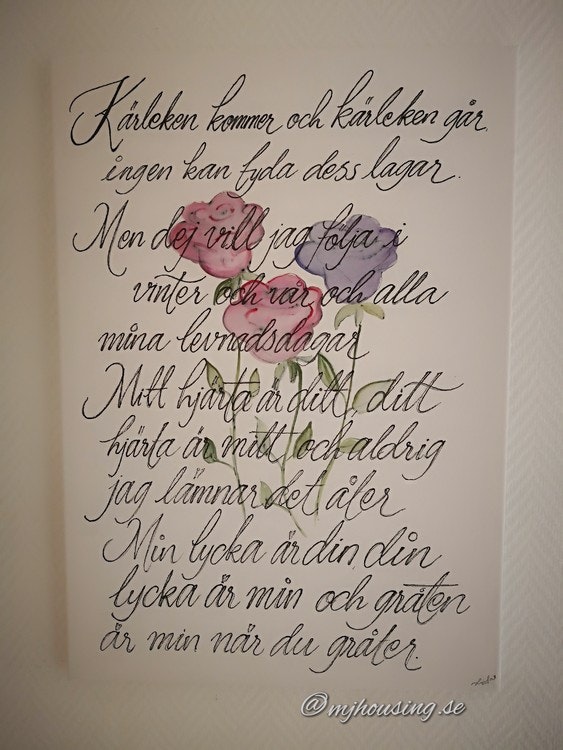 Kärleken kommer och kärleken går,
ingen kan tyda dess lagar.
Men dej vill jag följa i
vinter och vår och alla
mina levnadsdagar
Mitt hjärta är ditt, ditt
hjärta är mitt och aldrig
jag lämnar det åter
Min lycka är din, din
lycka är min och gråten
är min när du gråter.
@mjhousing.se